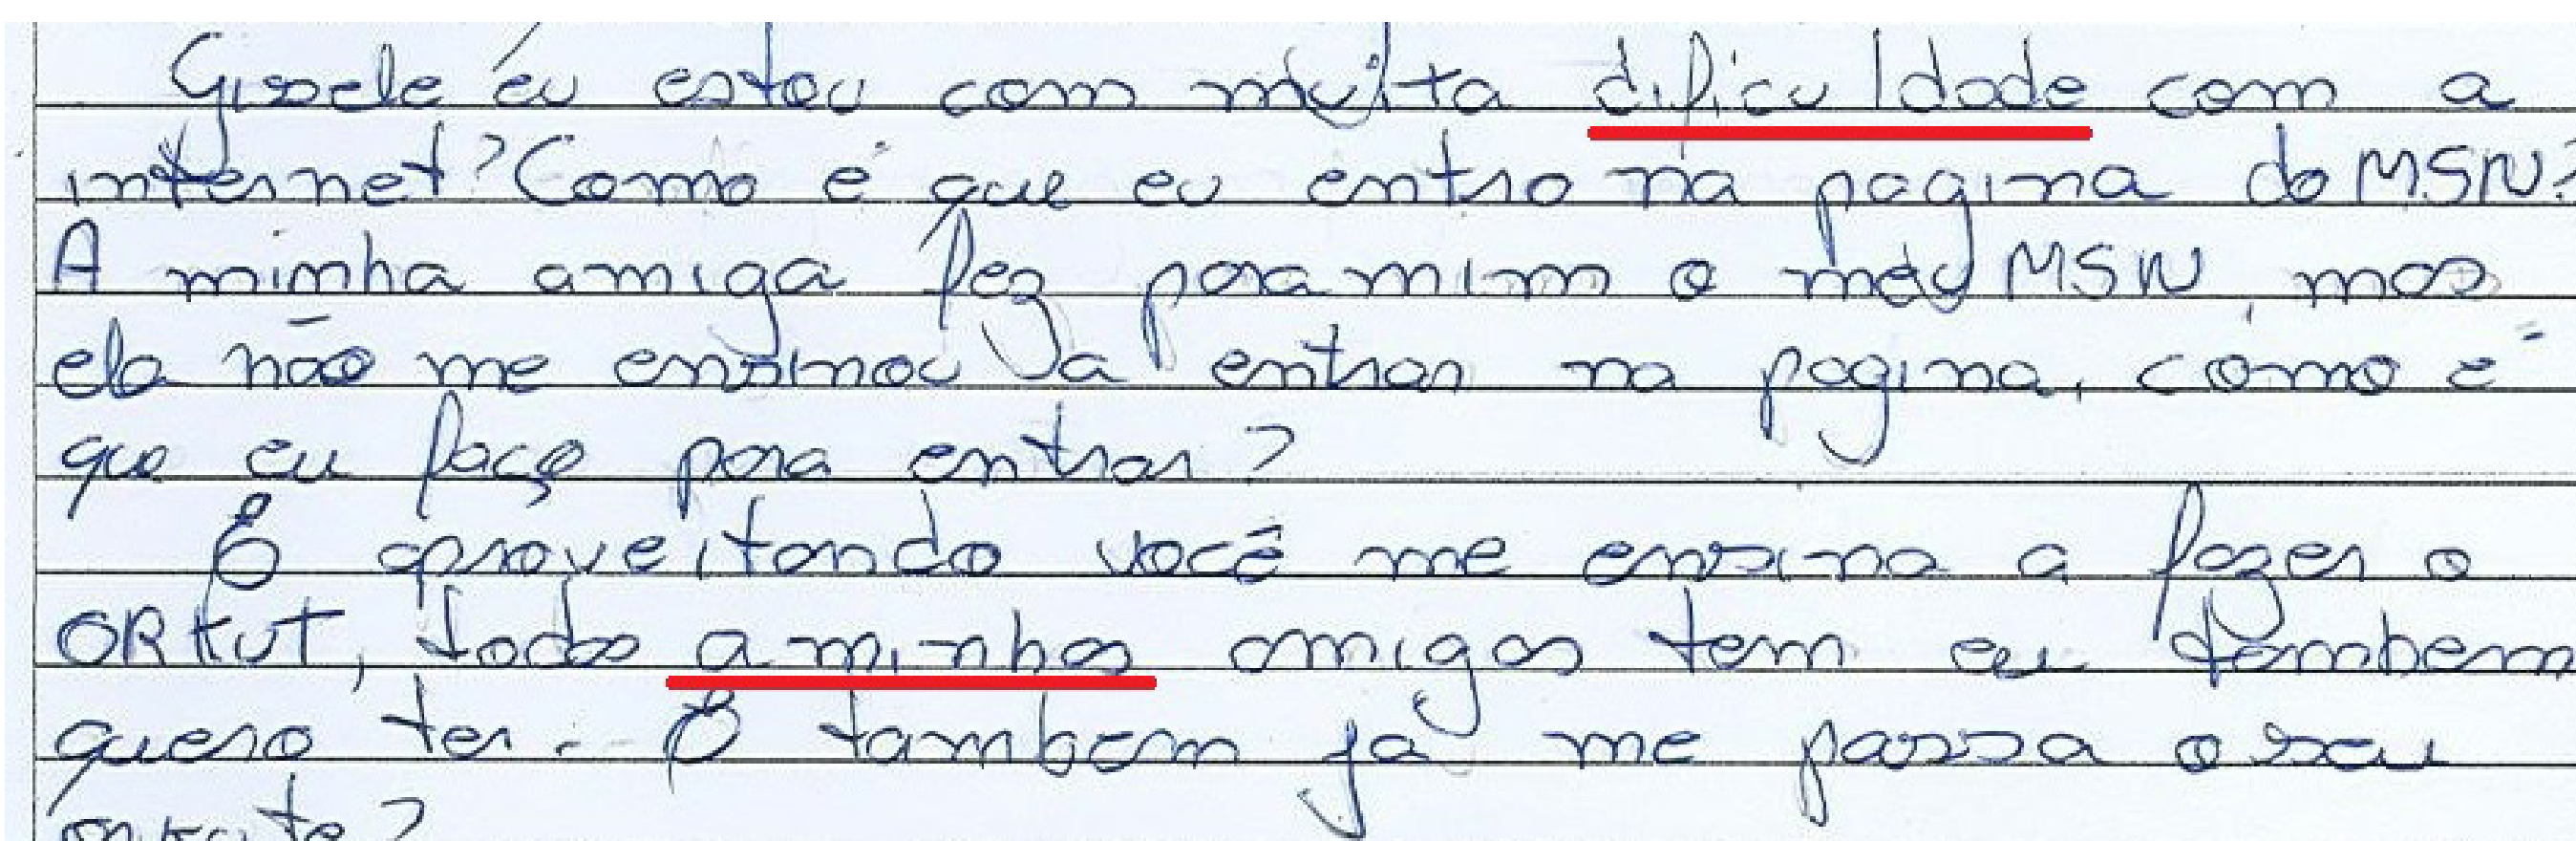 Gisele eu estou com muita dificuldade com a
internet? Como é que eu entro na pagina do MSN?
A minha amiga fez para mim o meu MSN, mas
ela não me ensinou a entrar na pagina, como é
que eu faço para entrar?
E aproveitando você me ensina a fazer o
ORKUT, todas aminhas amigas tem eu tambem
quero ter. E tambem já me passa o seu